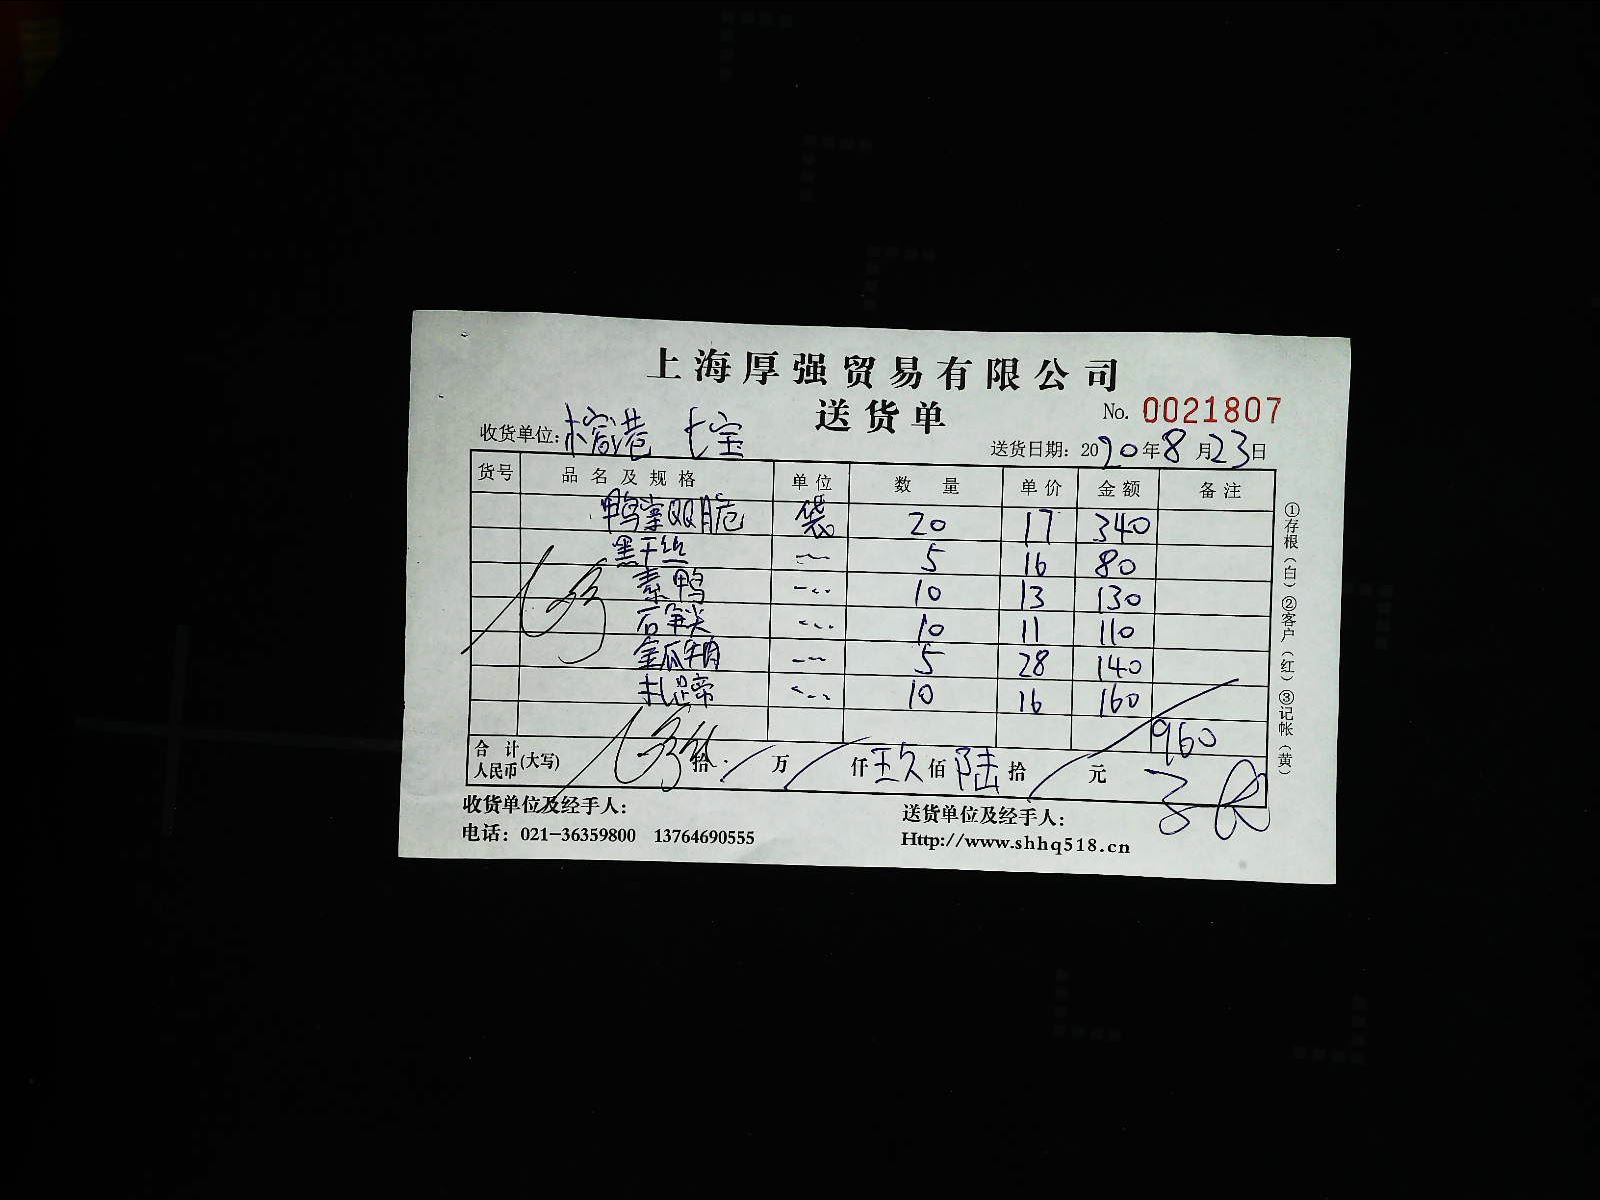 上海厚强贸易有限公司
送货单
No. 0021807
收货单位: 榕港 七宝
送货日期: 2020年8月23日
货号 品名及规格 单位 数量 单价 金额 备注
鸭掌QQ脆 袋 20 17 340
黑干丝 〃 5 16 80
素鸭 〃 10 13 130
〃 10 11 110
金瓜 〃 5 28 140
扎蹄 〃 10 16 160
960
合计人民币(大写) 拾 万 仟 玖佰 陆拾 元
收货单位及经手人:
送货单位及经手人:
电话: 021-36359800 13764690555
Http://www.shhq518.cn
①存根(白)②客户(红)③记帐(黄)